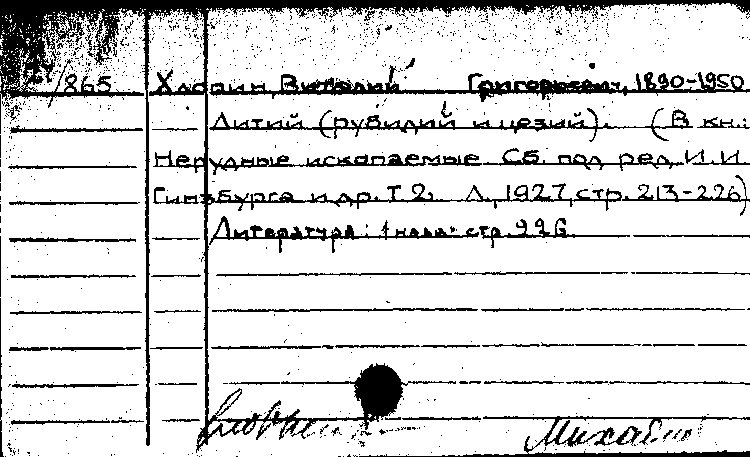 /865 Хлопин, Виталий Григорьевич, 1890-1950
Литий (рубидий и цезий). (В кн.:
Нерудные ископаемые. Сб. под ред. И.И.
Гинзбурга и др. Т 2. Л., 1927, стр. 213-226)
Литература: стр. 226.